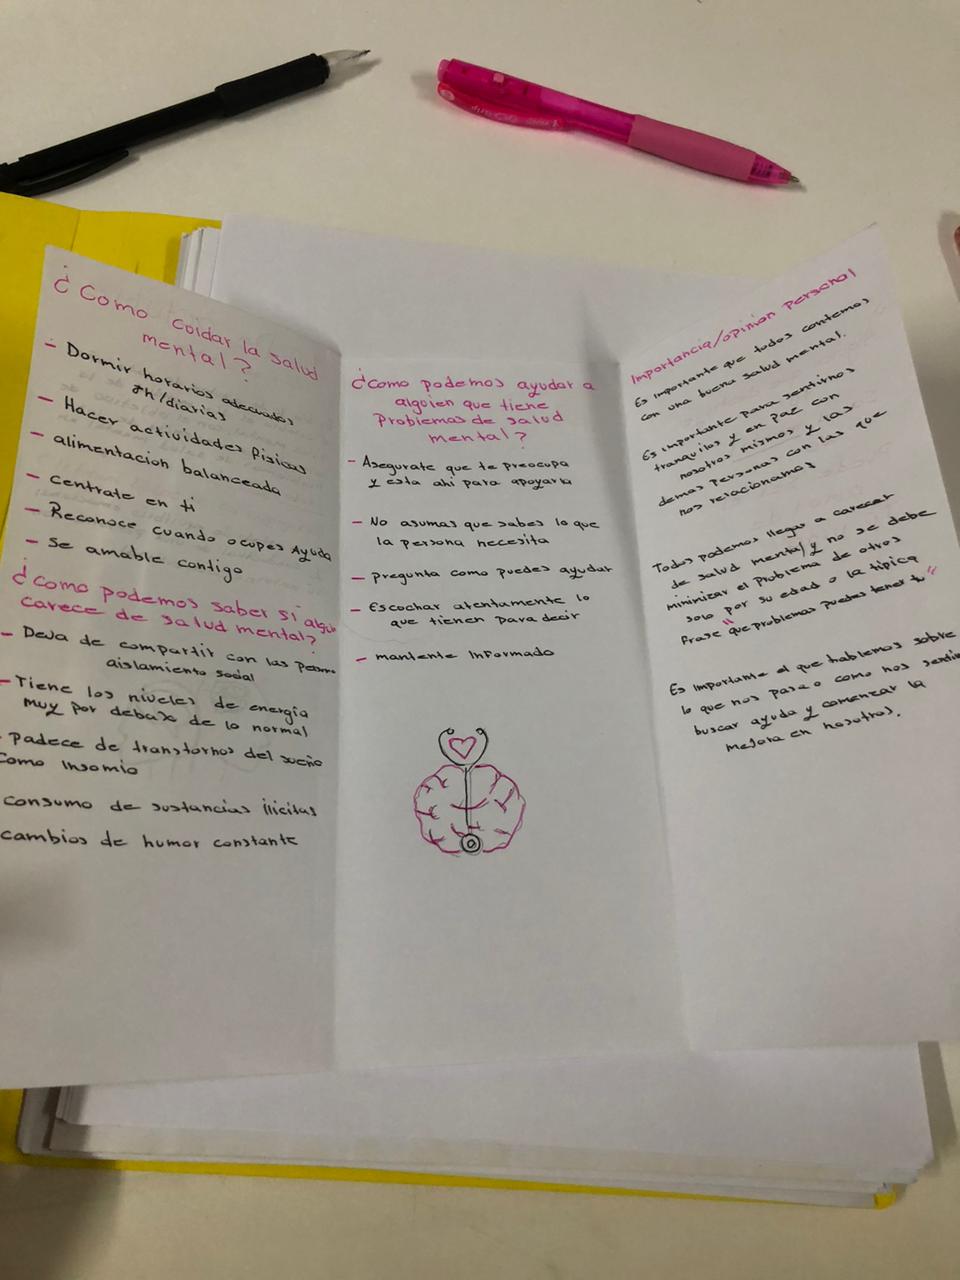 ¿Como coidar la salud
mental?
- Dormir horarios adecuados
8h/diarias
- Hacer actividades físicas
- alimentacion balanceada
- centrate en ti
- Reconoce cuando ocupes Ayuda
- Se amable contigo
¿como podemos saber si alguien
carece de salud mental?
- Deja de compartir con las
aislamiento social
- Tiene los niveles de energía
muy por debajo de lo normal
- padece de transtornos del sueño
como Insomio
consumo de sustancias ilicitas
cambios de humor constante
¿como podemos ayudar a
alguien que tiene
Problemas de salud
mental?
- Asegurate que te preocupa
y esta ahi para apoyarla
- No asumas que sabes lo que
la persona necesita
- pregunta como puedes ayudar
- Escochar atentamente lo
que tienen para decir
- mantente Informado
Importancia/opinión Personal
Es importante que todos contemos
con una buena salud mental.
Es importante para sentirnos
tranquilos y en paz con
nosotros mismos y las
demas personas con las que
nos relacionamos
Todos podemos llegar a carecer
de salud mental y no se debe
minimizar el problema de otros
solo por su edad o la típica
frase "que problemas puedes tener tu"
Es importante el que hablemos sobre
lo que nos pasa o como nos
buscar ayuda y comenzar la
mejora en nosotros.